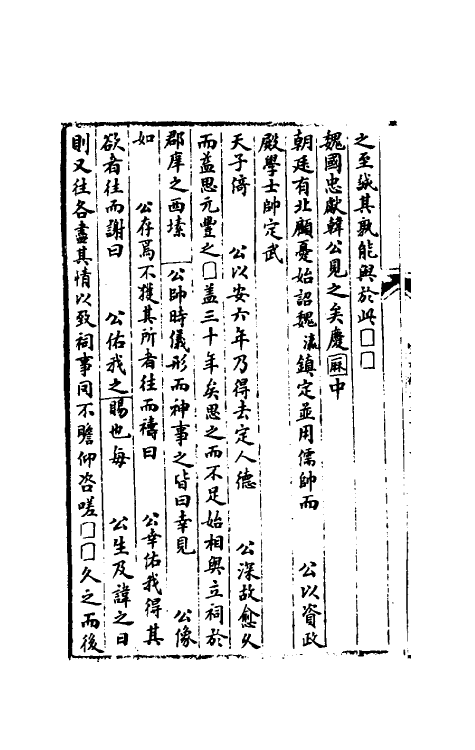 之至誠其孰能與於此□□
魏國忠獻韓公見之矣慶曆中
朝廷有北顧憂始詔魏瀛鎮定並用儒帥而　公以資政
殿學士帥定武
天子倚　公以安六年乃得去定人德　公深故愈久
而益思元豐之□蓋三十年矣思之而不足始相與立祠於
郡庠之西塾　公帥時儀形而神事之皆曰幸見　公像
如　公存焉不獲其所者往而禱曰　公幸佑我得其
欲者往而謝曰　公佑我之賜也每　公生及諱之日
則又往各盡其情以致祠事罔不瞻仰咨嗟□□久之而後